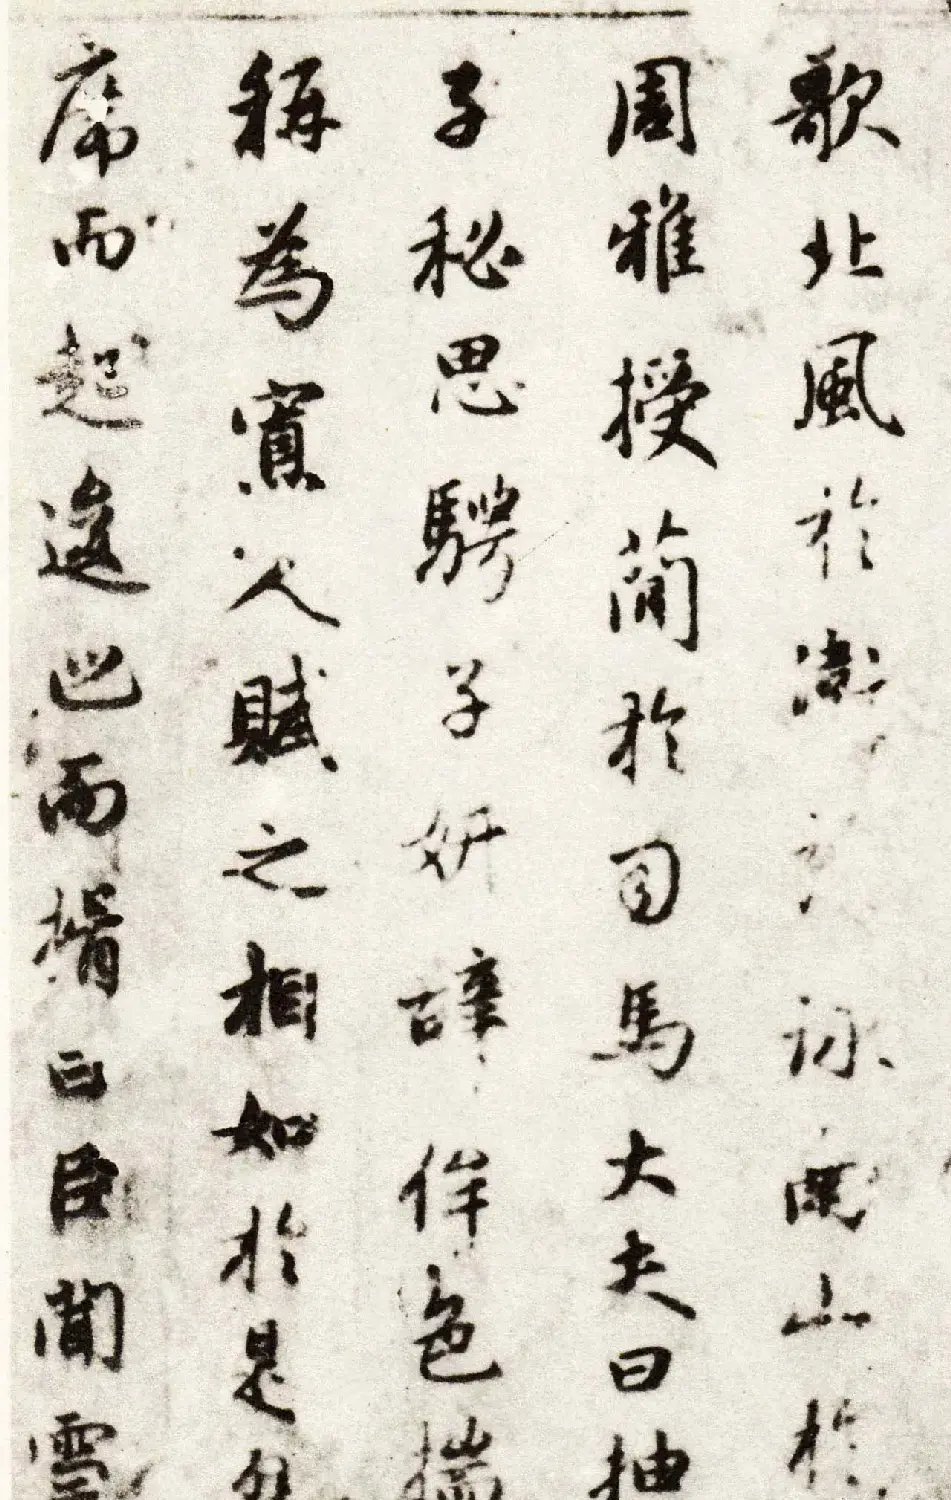 歌北風於衛詠南山於
周雅授簡於司馬大夫曰抽
子秘思騁子妍辭侔色揣
稱為寡人賦之相如於是
席而起逡巡而揖曰臣聞雪